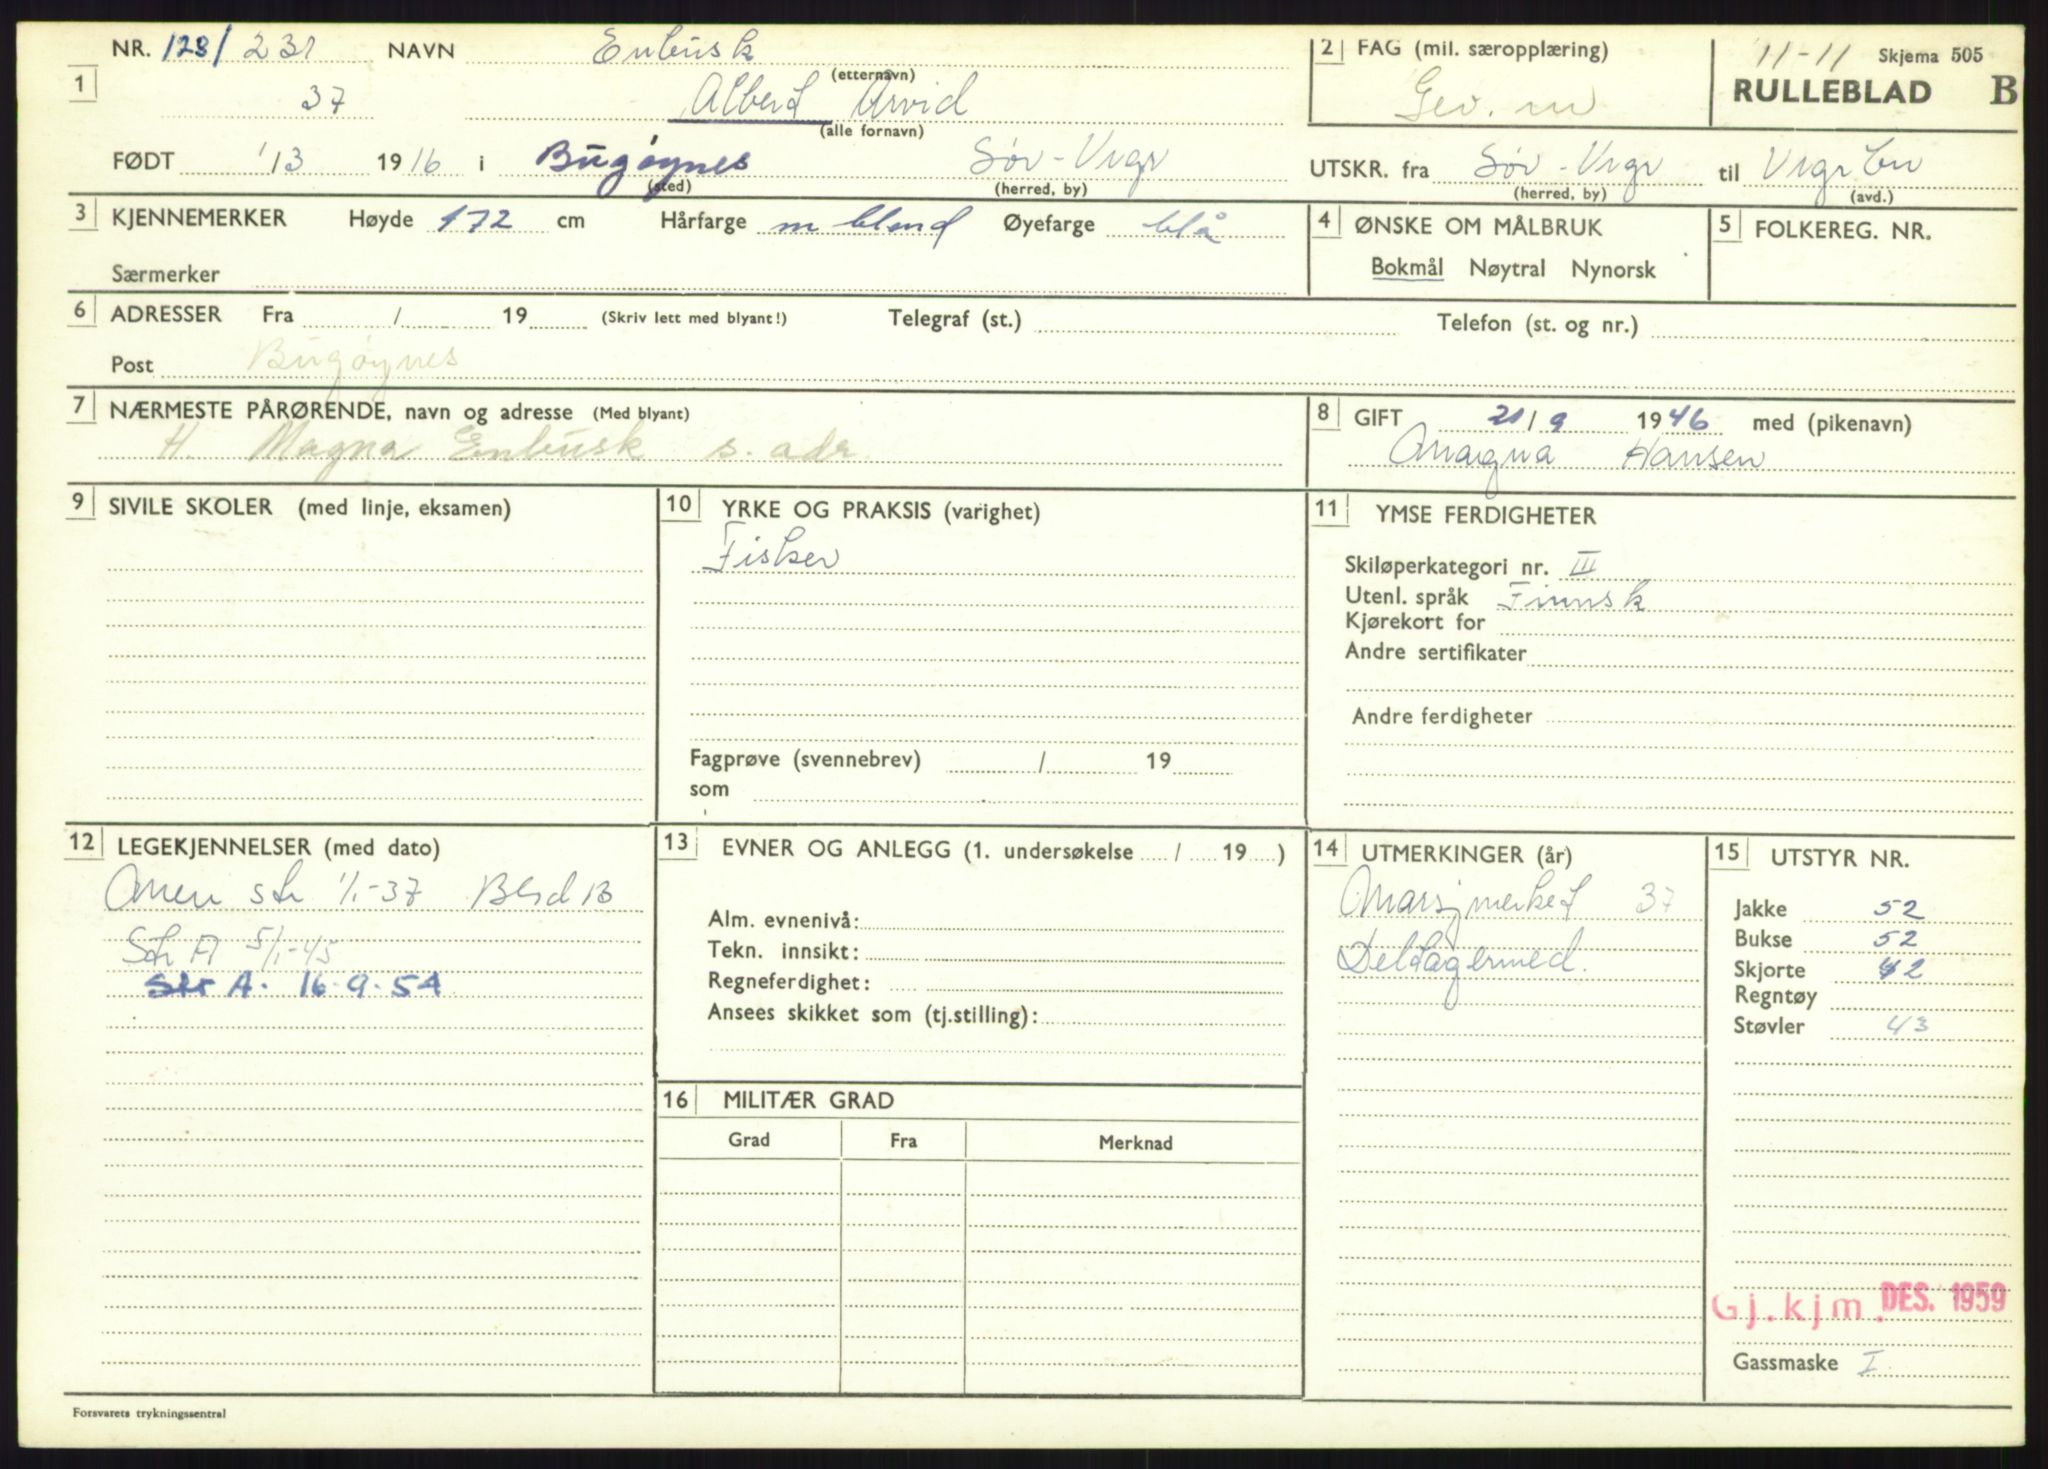 NR. 128/231 NAVN Enbusk
(etternavn)
1 37 Albert Arvid
(alle fornavn)
2 FAG (mil. særopplæring)
Gev. m
11-11 Skjema 505
RULLEBLAD B
FØDT 1/3 1916 i Bugøynes Sør-Vrgr
(sted) (herred, by)
UTSKR. fra Sør-Vrgr til Vrgr bn
(herred, by) (avd.)
3 KJENNEMERKER Høyde 172 cm Hårfarge m blond Øyefarge blå
Særmerker
4 ØNSKE OM MÅLBRUK
Bokmål Nøytral Nynorsk
5 FOLKEREG. NR.
6 ADRESSER Fra / 19 (Skriv lett med blyant!) Telegraf (st.) Telefon (st. og nr.)
Post Bugøynes
7 NÆRMESTE PÅRØRENDE, navn og adresse (Med blyant)
H. Magna Enbusk s. adr
8 GIFT 21/9 1946 med (pikenavn)
Magna Hansen
9 SIVILE SKOLER (med linje, eksamen)
10 YRKE OG PRAKSIS (varighet)
Fisker
Fagprøve (svennebrev) / 19
som
11 YMSE FERDIGHETER
Skiløperkategori nr. III
Utenl. språk Finnsk
Kjørekort for
Andre sertifikater
Andre ferdigheter
12 LEGEKJENNELSER (med dato)
str 1/1-37
Str A 5/1-45
Str A. 16.9.54
13 EVNER OG ANLEGG (1. undersøkelse / 19 )
Alm. evnenivå:
Tekn. innsikt:
Regneferdighet:
Ansees skikket som (tj.stilling):
14 UTMERKINGER (år)
Marsjmerket 37
Deltagermed.
15 UTSTYR NR.
Jakke 52
Bukse 52
Skjorte 42
Regntøy
Støvler 43
Gj.kjm. DES. 1959
Gassmaske I
16 MILITÆR GRAD
Grad Fra Merknad
Forsvarets trykningssentral